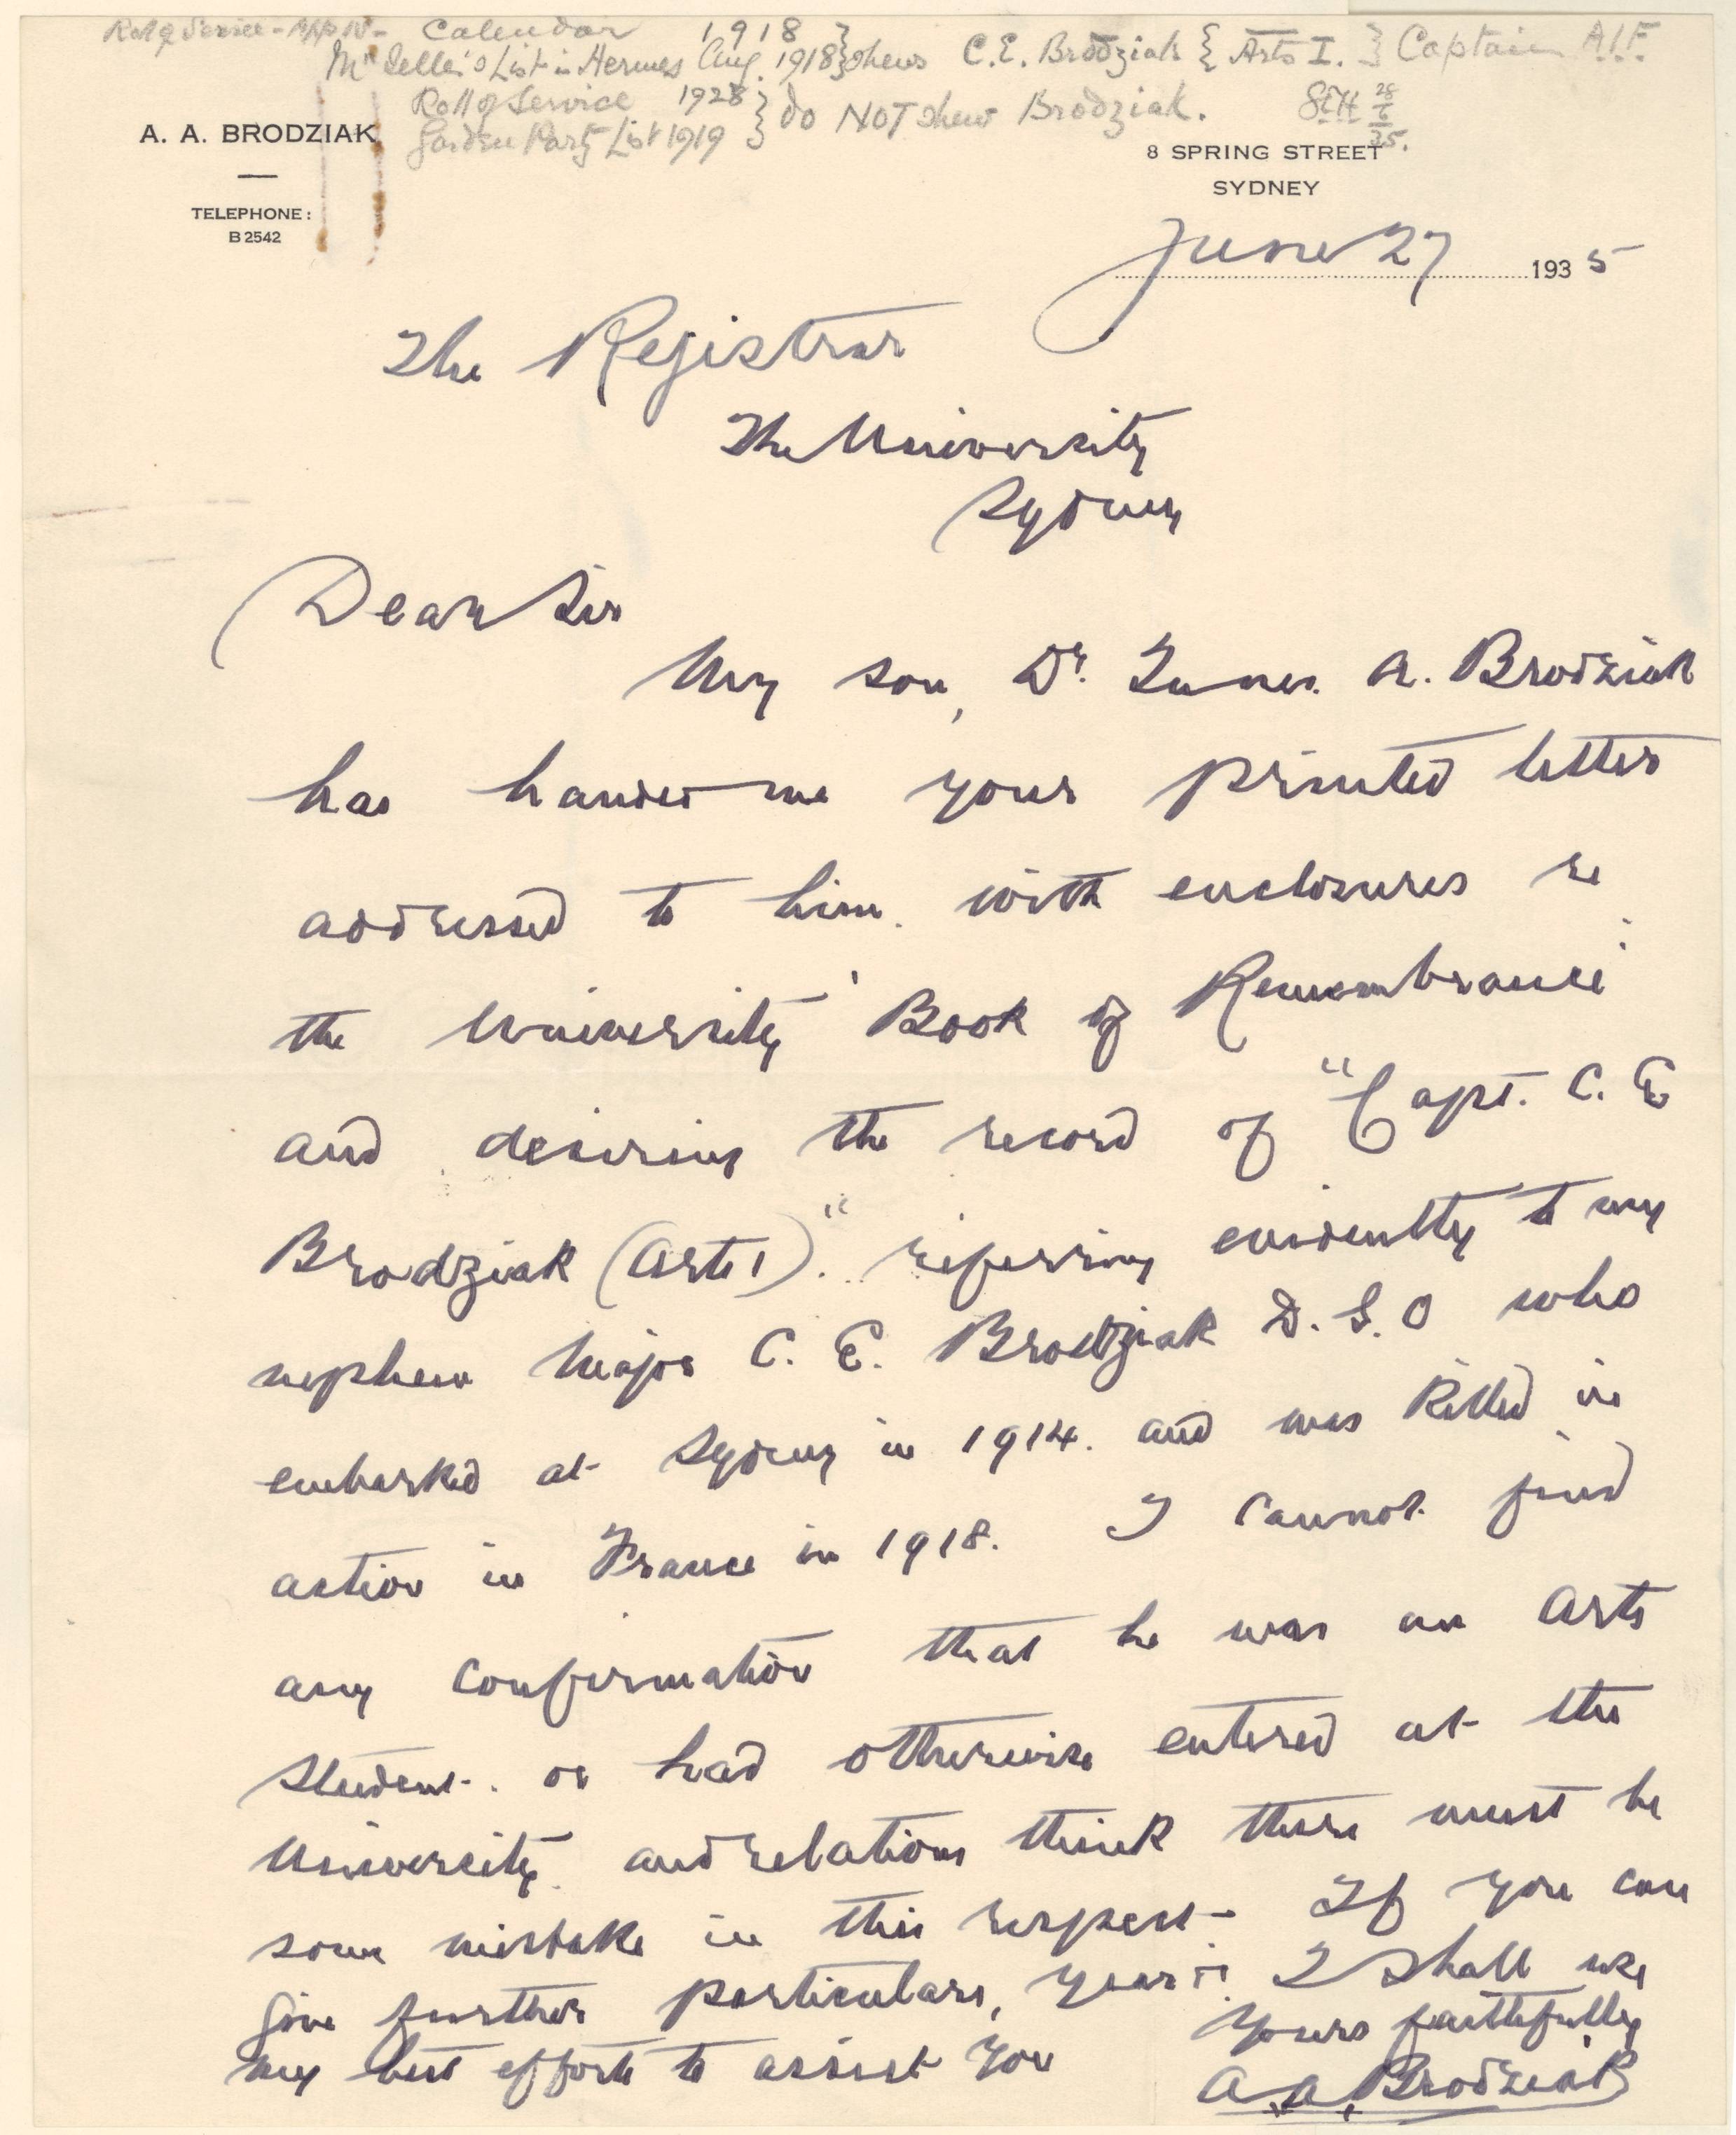 Roll of Service - App IV - Calendar 1918 }
Mr Selle's List in Hermes Aug. 1918 } shews C.E. Brodziak { Arts I. } Captain A.I.F.
Roll of Service 1928 }
Garden Party List 1919 } do NOT shew Brodziak. 28/6/35.
A. A. BRODZIAK
TELEPHONE:
B 2542
8 SPRING STREET
SYDNEY
June 27 1935
The Registrar
The University
Sydney
Dear Sir
My son, Dr. Innes. A. Brodziak
has handed me your printed letter
addressed to him. with enclosures re
the University "Book of Remembrance"
and desiring the record of "Capt. C. E
Brodziak (Arts 1)." referring evidently to my
nephew Major C. E. Brodziak D. S. O who
embarked at Sydney in 1914. and was killed in
action in France in 1918. I cannot find
any confirmation that he was an Arts
student. or had otherwise entered at the
University. and relations think there must be
some mistake in this respect. If you can
give further particulars, year i: I shall use
my best efforts to assist you
Yours faithfully
A. A. Brodziak